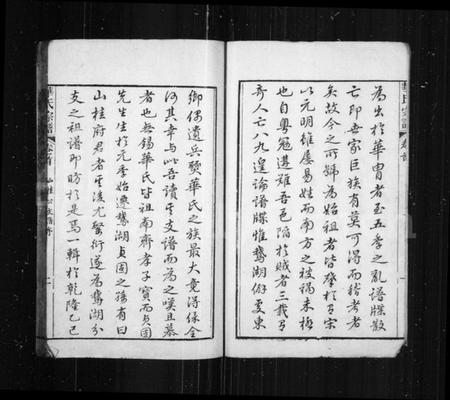 為出於華胄者至五季之亂譜牒散
亡即吾家巨族有莫可得而稽考者
矣故今之可歸為始祖者皆肇於宋
以元明雖屢易姓而南方之被禍未極
也自粵寇遘難吾邑陷於賊者三載
人亡八九遑論譜牒惟鵝湖俯更東
鄉僅遺兵燹華氏之族最大竟得保全
何其幸與此吾讀其支譜而為之嘆且慕
者也無錫華氏皆祖南齊孝子寶而貞固
先生生於元季始遷鵝湖貞固之孫有曰
山桂府君者其後尤繁衍遂為鵝湖分
支之祖譜即昉於是焉一輯於乾隆乙巳
氏宗譜
卷首